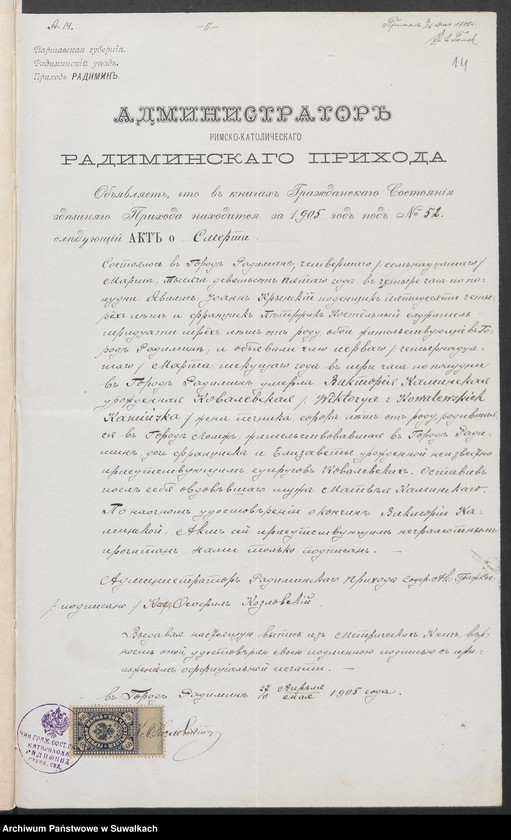 А. 14.
14
Варшавская губернія.
Радиминскій уѣздъ.
Приходъ РАДИМИНЪ.
АДМИНИСТРАТОРЪ
РИМСКО-КАТОЛИЧЕСКАГО
РАДИМИНСКАГО ПРИХОДА
Объявляетъ, что въ книгахъ Гражданскаго Состоянія
здѣшняго Прихода находится за 1905 годъ подъ № 52.
слѣдующій АКТЪ о Смерти.
Состоялось въ Городѣ Радиминѣ, четвертаго /семнадцатаго/
Марта, тысяча девятьсотъ пятаго года, въ четыре часа по по-
лудни. Явились Іоаннъ Крынскій поденщикъ пятидесяти четы-
рёхъ лѣтъ и францискъ костельный служитель
тридцати трёхъ лѣтъ отъ роду, оба жительствующіе въ Го-
родѣ Радиминѣ, и объявили что перваго /четырнадца-
таго/ Марта текущаго года въ три часа по полудни
въ Городѣ Радиминѣ умерла Викторія Каминская
урожденная Ковалевская /Wiktorya z Kowalewskich
Kamińska/ жена печника, сорока лѣтъ отъ роду, родивша-
яся въ Городѣ Ломжѣ, жительствовавшая въ Городѣ Ради-
минѣ, дочь франциска и Елизаветы урожденной неизвѣстно
присутствующимъ супруговъ Ковалевскихъ. Оставивъ
послѣ себя овдовѣвшаго мужа Матвѣя Каминскаго.
По наочномъ удостовѣреніи о кончинѣ Викторіи Ка-
минской, Актъ сей присутствующимъ неграмотнымъ
прочитанъ, нами только подписанъ. —
Администраторъ Радиминскаго прихода
/подписано/ Кс. Ѳеофилъ Козловскій.
Выдавая настоящую выпись изъ метрическихъ книгъ, вѣр-
ность оной, удостовѣряю своею подлинною подписью съ при-
ложеніемъ оффиціальной печати. —
въ Городѣ Радиминѣ 27/10 Апрѣля/мая 1905 года.
Archiwum Państwowe w Suwałkach